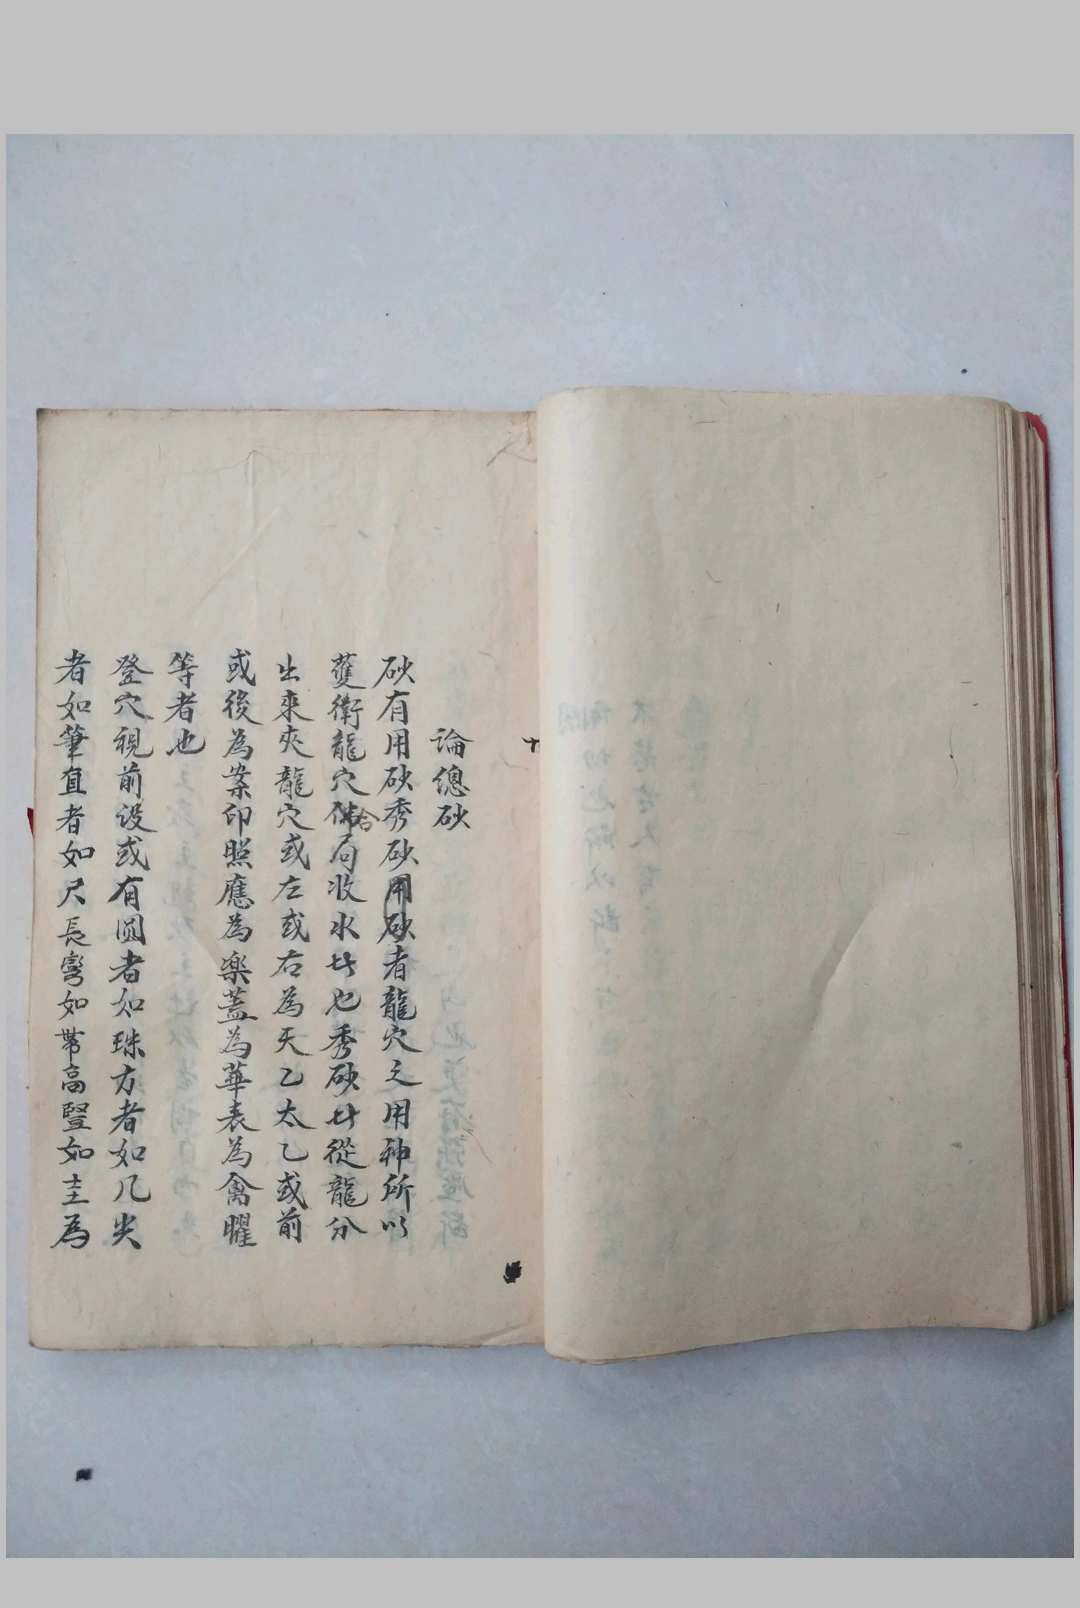 論總砂
砂有用砂秀砂用砂者龍穴之用神所以
護衛龍穴合局收水者也秀砂者從龍分
出來夾龍穴或左或右為天乙太乙或前
或後為案印照應為樂蓋為華表為禽曜
等者也
登穴視前設或有圆者如珠方者如几尖
者如筆直者如尺長彎如帶高豎如圭為